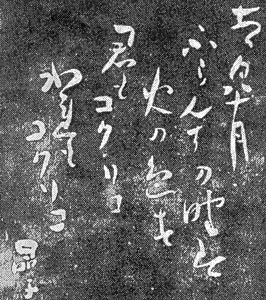 あゝ皐月
ふらんすの野は
火の色す
君もコクリコ
われもコクリコ
晶子